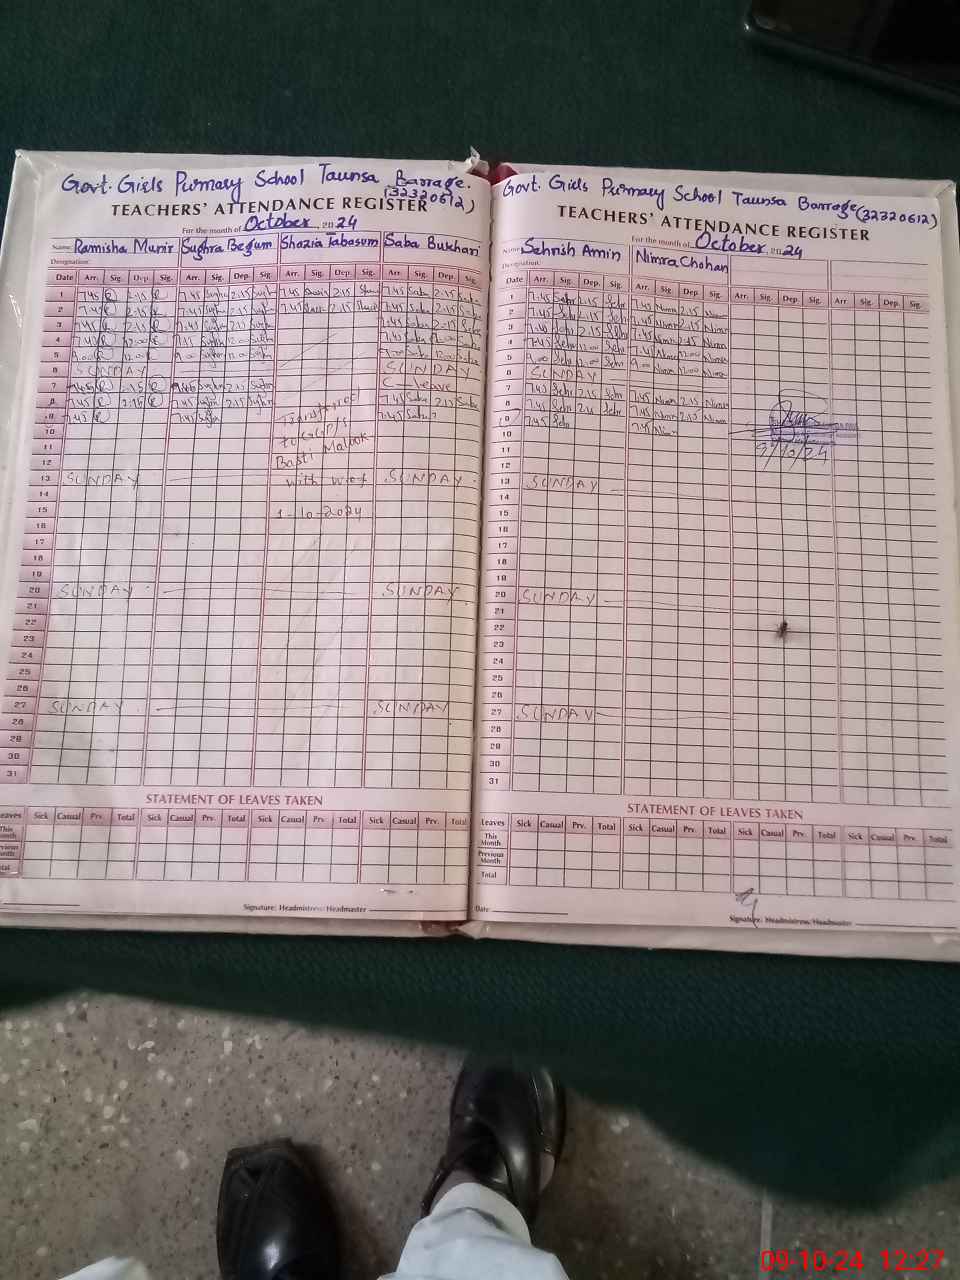 Govt. Girls Primary School Taunsa Barrage.
(32320612)
TEACHERS' ATTENDANCE REGISTER
For the month of October, 2024
Name Ramisha Munir Sughra Begum Shazia Tabasum Saba Bukhari
Designation:
Date Arr. Sig. Dep. Sig. Arr. Sig. Dep. Sig. Arr. Sig. Dep. Sig. Arr. Sig. Dep. Sig.
1 7.45 2.15 7.45 2.15 7.45 2.15 7.45 Saba 2.15 Saba
2 7.45 2.15 7.45 2.15 7.45 2.15 7.45 Saba 2.15 Saba
3 7.45 2.15 7.45 2.15 7.45 Saba 2.15 Saba
4 7.45 12.00 12.00 7.45 Saba 12.00 Saba
5 9.00 12.00 9.00 12.00 9.00 Saba 12.00 Saba
6 SUNDAY SUNDAY
7 7.45 2.15 7.45 2.15 C-leave
8 7.45 2.15 7.45 2.15 7.45 Saba 2.15 Saba
9 7.45 7.45 Transferred 7.45 Saba
10 to GGP/S
11 Basti Malook
12
13 SUNDAY with w.e.f SUNDAY
14
15 1-10-2024
16
17
18
19
20 SUNDAY SUNDAY
21
22
23
24
25
26
27 SUNDAY SUNDAY
28
29
30
31
STATEMENT OF LEAVES TAKEN
Leaves Sick Casual Prv. Total Sick Casual Prv. Total Sick Casual Prv. Total Sick Casual Prv. Total
This Month
Previous Month
Total
Signature: Headmistress/Headmaster
Govt. Girls Primary School Taunsa Barrage (32320612)
TEACHERS' ATTENDANCE REGISTER
For the month of October, 2024
Name Sehrish Amin Nimra Chohan
Designation:
Date Arr. Sig. Dep. Sig. Arr. Sig. Dep. Sig. Arr. Sig. Dep. Sig. Arr. Sig. Dep. Sig.
1 7.45 Sehr 2.15 Sehr 7.45 Nimra 2.15 Nimra
2 7.45 Sehr 2.15 Sehr 7.45 Nimra 2.15 Nimra
3 7.45 Sehr 2.15 Sehr 7.45 Nimra 2.15 Nimra
4 7.45 Sehr 12.00 Sehr 7.45 Nimra 12.00 Nimra
5 9.00 Sehr 12.00 Sehr 9.00 Nimra 12.00 Nimra
6 SUNDAY
7 7.45 Sehr 2.15 Sehr 7.45 Nimra 2.15 Nimra
8 7.45 Sehr Sehr 7.45 Nimra 2.15 Nimra
9 7.45 Sehr 7.45
10
11 9/10/24
12
13 SUNDAY
14
15
16
17
18
19
20 SUNDAY
21
22
23
24
25
26
27 SUNDAY
28
29
30
31
STATEMENT OF LEAVES TAKEN
Leaves Sick Casual Prv. Total Sick Casual Prv. Total Sick Casual Prv. Total Sick Casual Prv. Total
This Month
Previous Month
Total
Date:
Signature: Headmistress/Headmaster
09-10-24 12:27